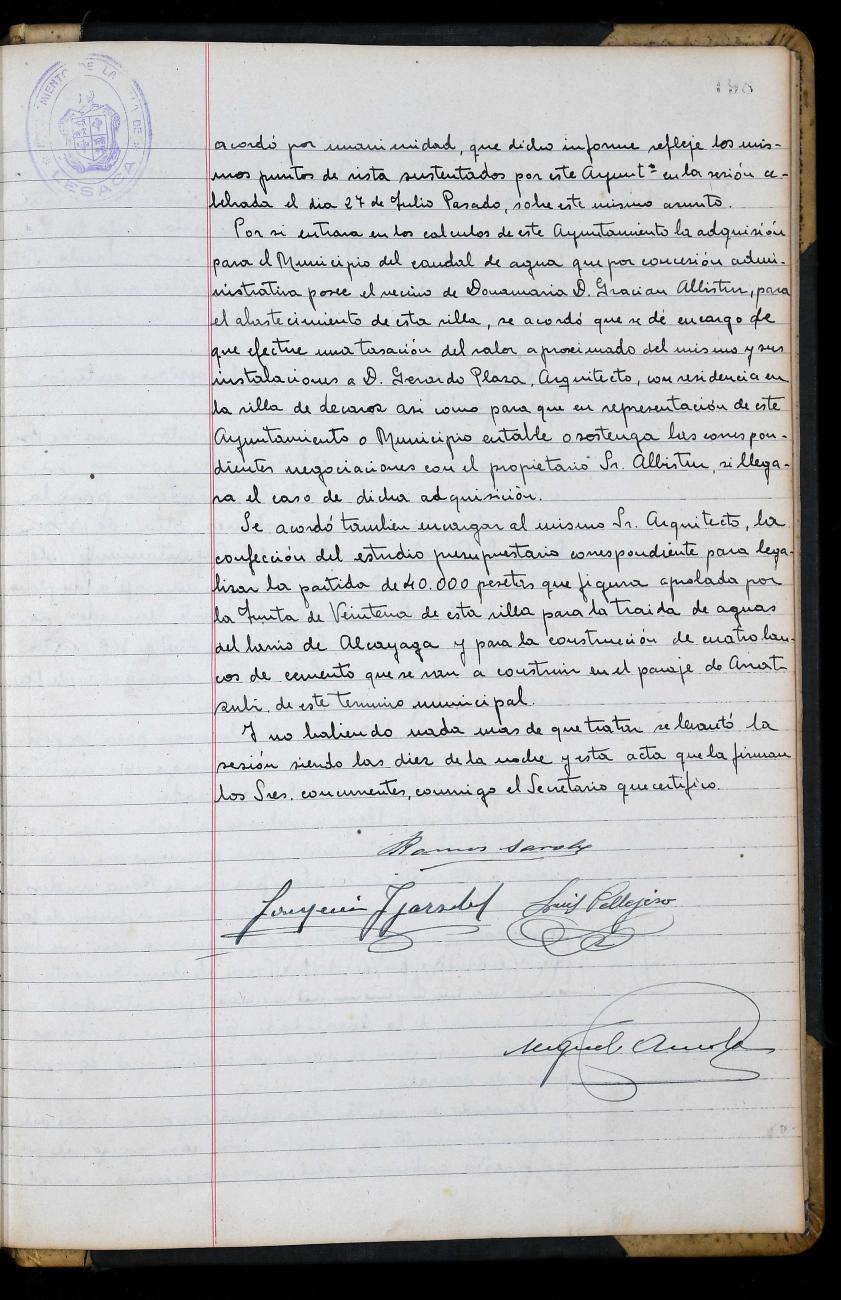 AYUNTAMIENTO DE LA VILLA DE
LESACA
198
acordó por unanimidad, que dicho informe refleje los mis-
mos puntos de vista sustentados por este Ayuntº en la sesión ce-
lebrada el dia 27 de Julio Pasado, sobre este mismo asunto.
Por si entrara en los calculos de este Ayuntamiento la adquisión
para el Municipio del caudal de agua que por concesión admi-
nistrativa posee el vecino de Donamaria D. Gracian Albistur, para
el abastecimiento de esta villa, se acordó que se dé encargo de
que efectue una tasación del valor aproximado del mismo y sus
instalaciones a D. Gerardo Plaza, Arquitecto, con residencia en
la villa de Lecaroz asi como para que en representación de este
Ayuntamiento o Municipio entable o sostenga las correspon-
dientes negociaciones con el propietario Sr. Albistur, si llega-
ra el caso de dicha adquisición.
Se acordó tambien encargar al mismo Sr. Arquitecto, la
confección del estudio presupuestario correspondiente para lega-
lizar la partida de 40.000 pesetas que figura aprobada por
la Junta de Veintena de esta villa para la traida de aguas
del barrio de Alcayaga y para la construción de cuatro ban-
cos de cemento que se van a construir en el paraje de Arrat-
zubi, de este termino municipal.
Y no habiendo nada mas de que tratar se levantó la
sesión siendo las diez de la noche y esta acta que la firman
los Sres. concurrentes, conmigo el Secretario que certifico.
Ramos
Joaquin Luis Pellejero
Miguel